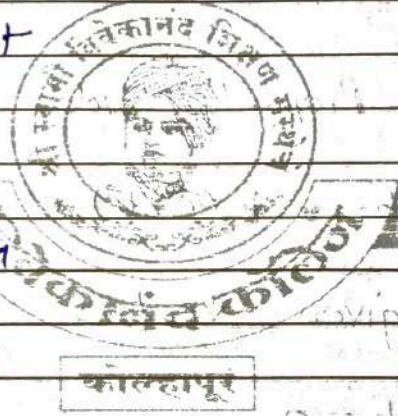 श्री स्वामी विवेकानंद शिक्षण संस्था
विवेकानंद कॉलेज
कोल्हापूर